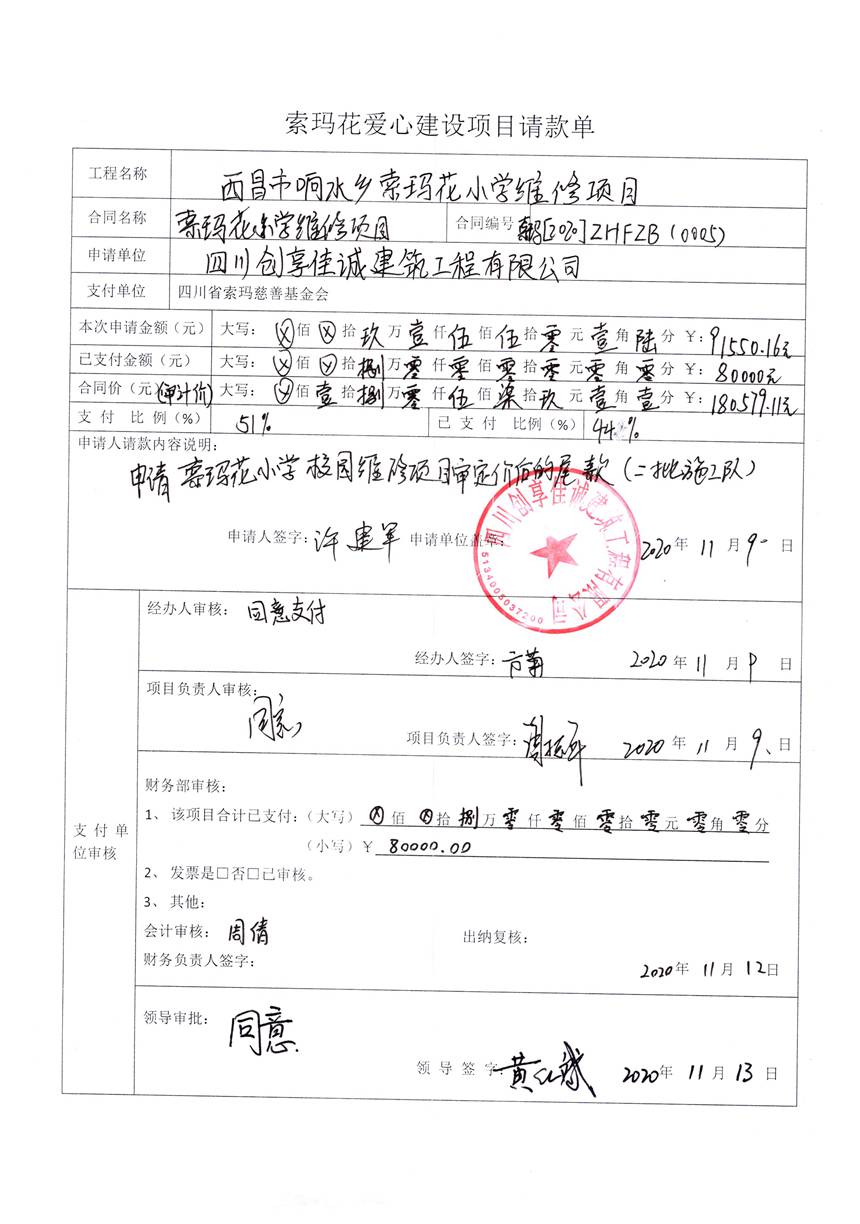 索玛花爱心建设项目请款单
工程名称 西昌市响水乡索玛花小学维修项目
合同名称 索玛花小学维修项目 合同编号 [2020]ZHFZB(0005)
申请单位 四川创享佳诚建筑工程有限公司
支付单位 四川省索玛慈善基金会
本次申请金额（元） 大写： ⊗佰⊗拾玖万壹仟伍佰伍拾零元壹角陆分 ￥：91550.16元
已支付金额（元） 大写： ⊗佰⊗拾捌万零仟零佰零拾零元零角零分 ￥：80000元
合同价（元）(审计价) 大写： ⊗佰壹拾捌万零仟伍佰柒拾玖元壹角壹分 ￥：180579.11元
支付 比例（%） 51% 已支付 比例（%） 44%
申请人请款内容说明：
申请索玛花小学校园维修项目审定价后的尾款（二批施工队）
申请人签字：许建军 申请单位盖章： 2020年11月9日
四川创享佳诚建筑工程有限公司
5134005037200
经办人审核： 同意支付
经办人签字： 2020年11月9日
项目负责人审核： 同意
项目负责人签字： 2020年11月9日
支付单位审核
财务部审核：
1、 该项目合计已支付：（大写） ⊗佰⊗拾捌万零仟零佰零拾零元零角零分
（小写）￥ 80000.00
2、 发票是□否□已审核。
3、 其他：
会计审核： 周倩 出纳复核：
财务负责人签字： 2020年11月12日
领导审批： 同意.
领导签字： 黄红斌 2020年11月13日